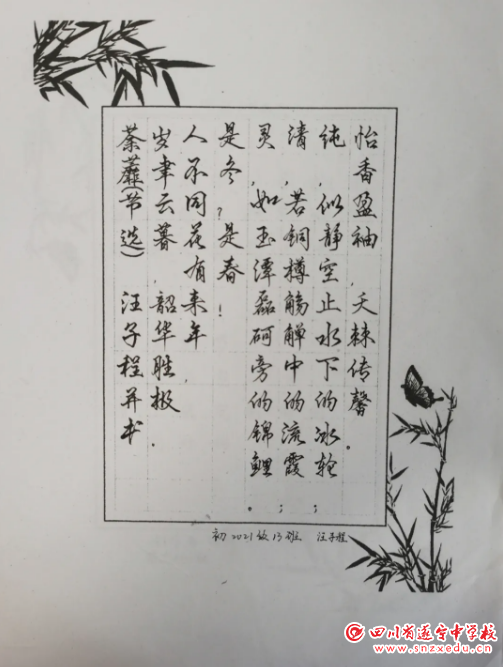 怡香盈袖,夭棘传馨.
纯,似静空止水下的冰轮;
清,若铜樽觞觯中的流霞;
灵,如玉潭磊砢旁的锦鲤.
是冬?是春!
人不同花有来年
岁聿云暮,韶华胜极.
荼蘼(节选) 汪子程并书
初2021级13班 汪子程
四川省遂宁中学校
www.snzxedu.cn